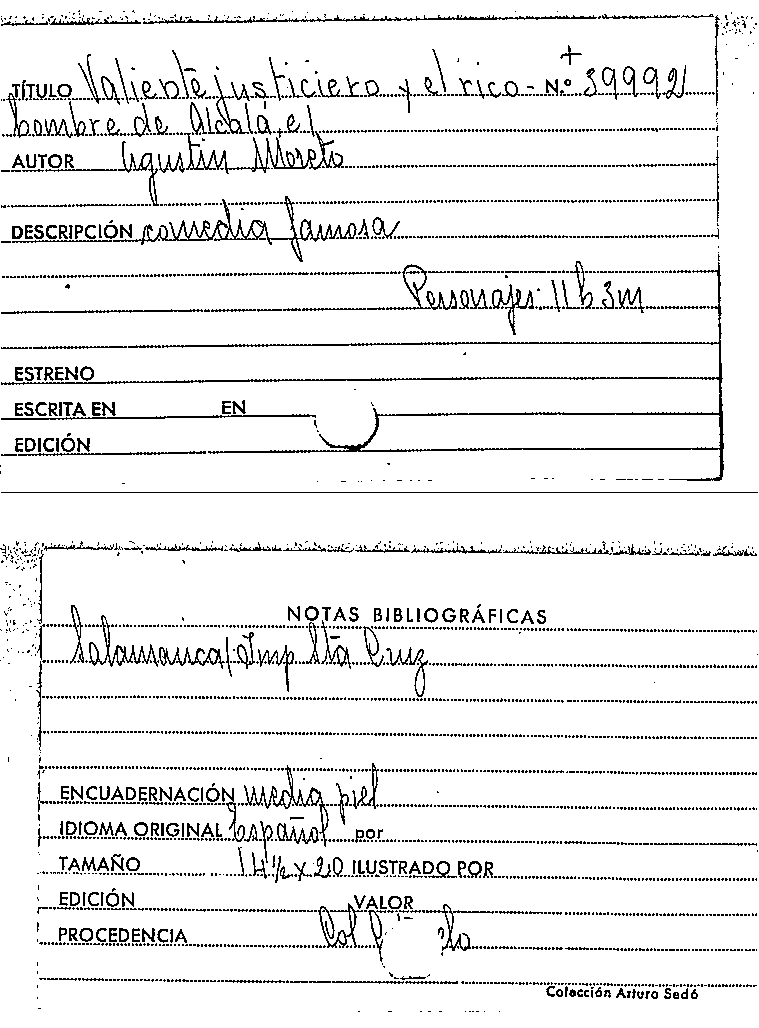 TÍTULO Valiente justiciero y el rico - N.º 39992
hombre de Alcalá, el
AUTOR Agustin Moreto
DESCRIPCIÓN comedia famosa
Personajes: 11 h 3m
ESTRENO
ESCRITA EN EN
EDICIÓN
NOTAS BIBLIOGRÁFICAS
Salamanca/ Imp Sta Cruz
ENCUADERNACIÓN media piel
IDIOMA ORIGINAL Español por
TAMAÑO 14 ½ x 20 ILUSTRADO POR
EDICIÓN VALOR
PROCEDENCIA Col
Colección Arturo Sedó